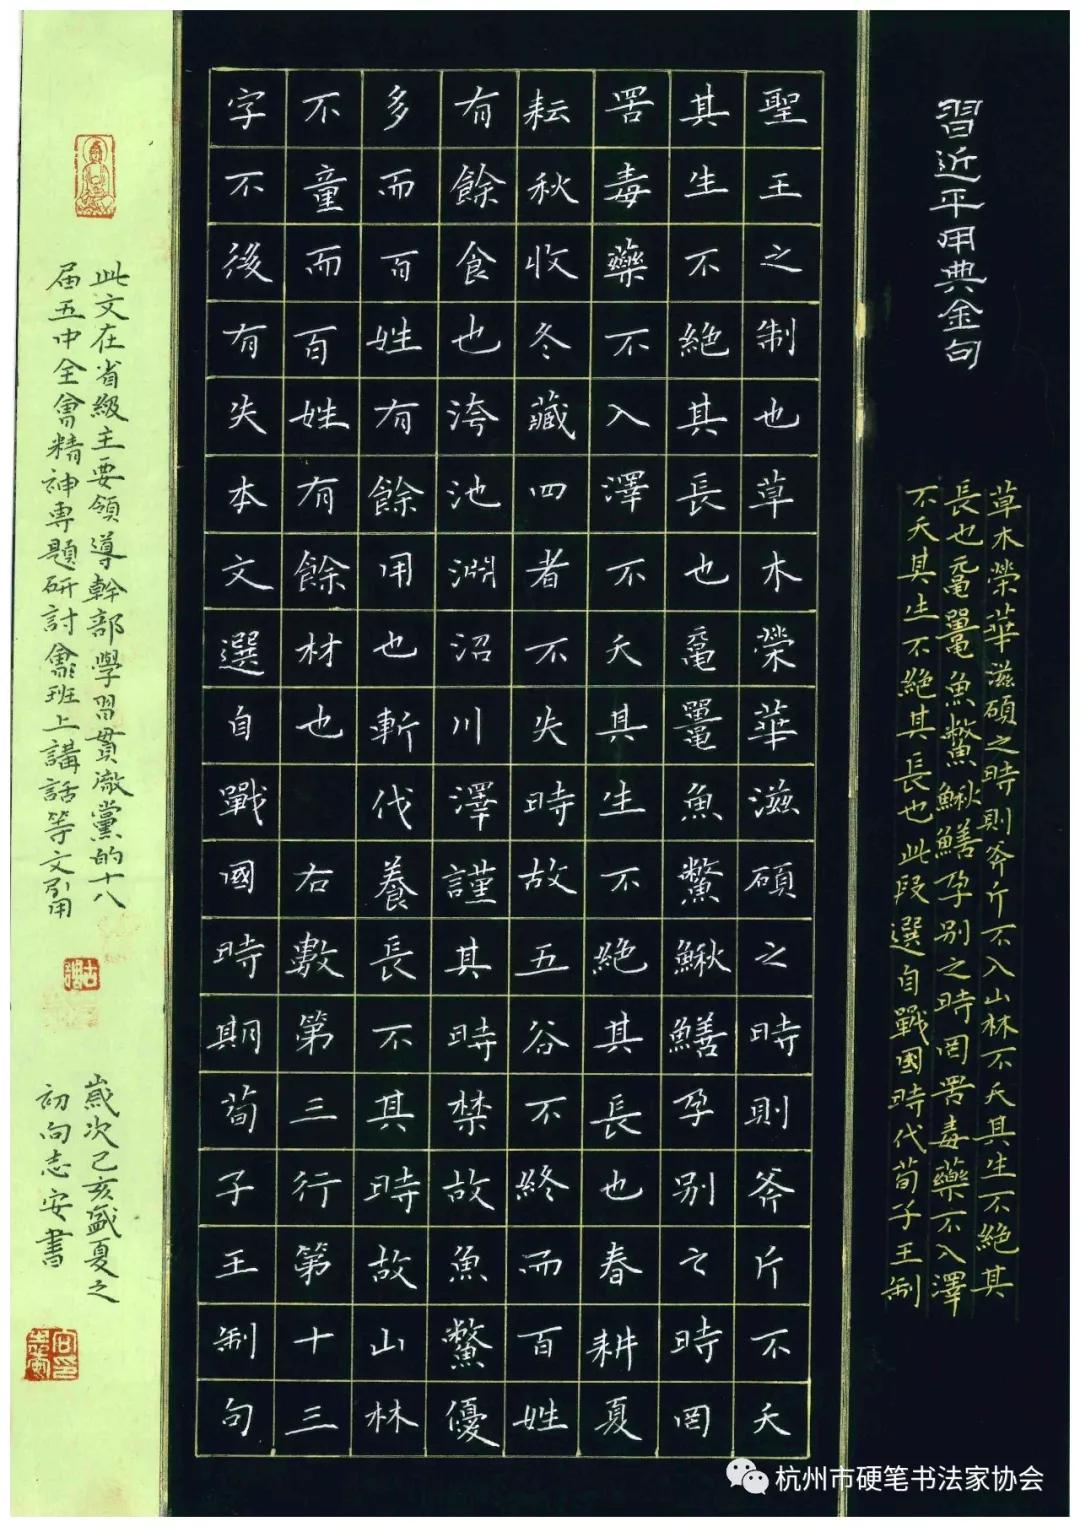 習近平用典金句
草木榮華滋碩之時則斧斤不入山林不夭其生不絕其
長也黿鼉魚鱉鰍鱔孕別之時罔罟毒藥不入澤
不夭其生不絕其長也此段選自戰國時代荀子王制
聖王之制也草木榮華滋碩之時則斧斤不夭
其生不絕其長也黿鼉魚鱉鰍鱔孕別之時罔
罟毒藥不入澤不夭其生不絕其長也春耕夏
耘秋收冬藏四者不失時故五谷不終而百姓
有餘食也洿池淵沼川澤謹其時禁故魚鱉優
多而百姓有餘用也斬伐養長不其時故山林
不童而百姓有餘材也 右數第三行第十三
字不後有失本文選自戰國時期荀子王制句
此文在省級主要領導幹部學習貫徹黨的十八
届五中全會精神專題研討會班上講話等文引用
歲次己亥盛夏之
初向志安書
杭州市硬笔书法家协会